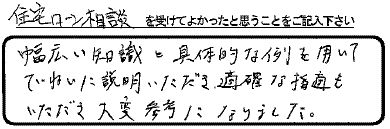 住宅ローン相談 を受けてよかったと思うことをご記入下さい
幅広い知識と具体的な例を用いて
ていねいに説明いただき、適確な指適も
いただき大変参考になりました。